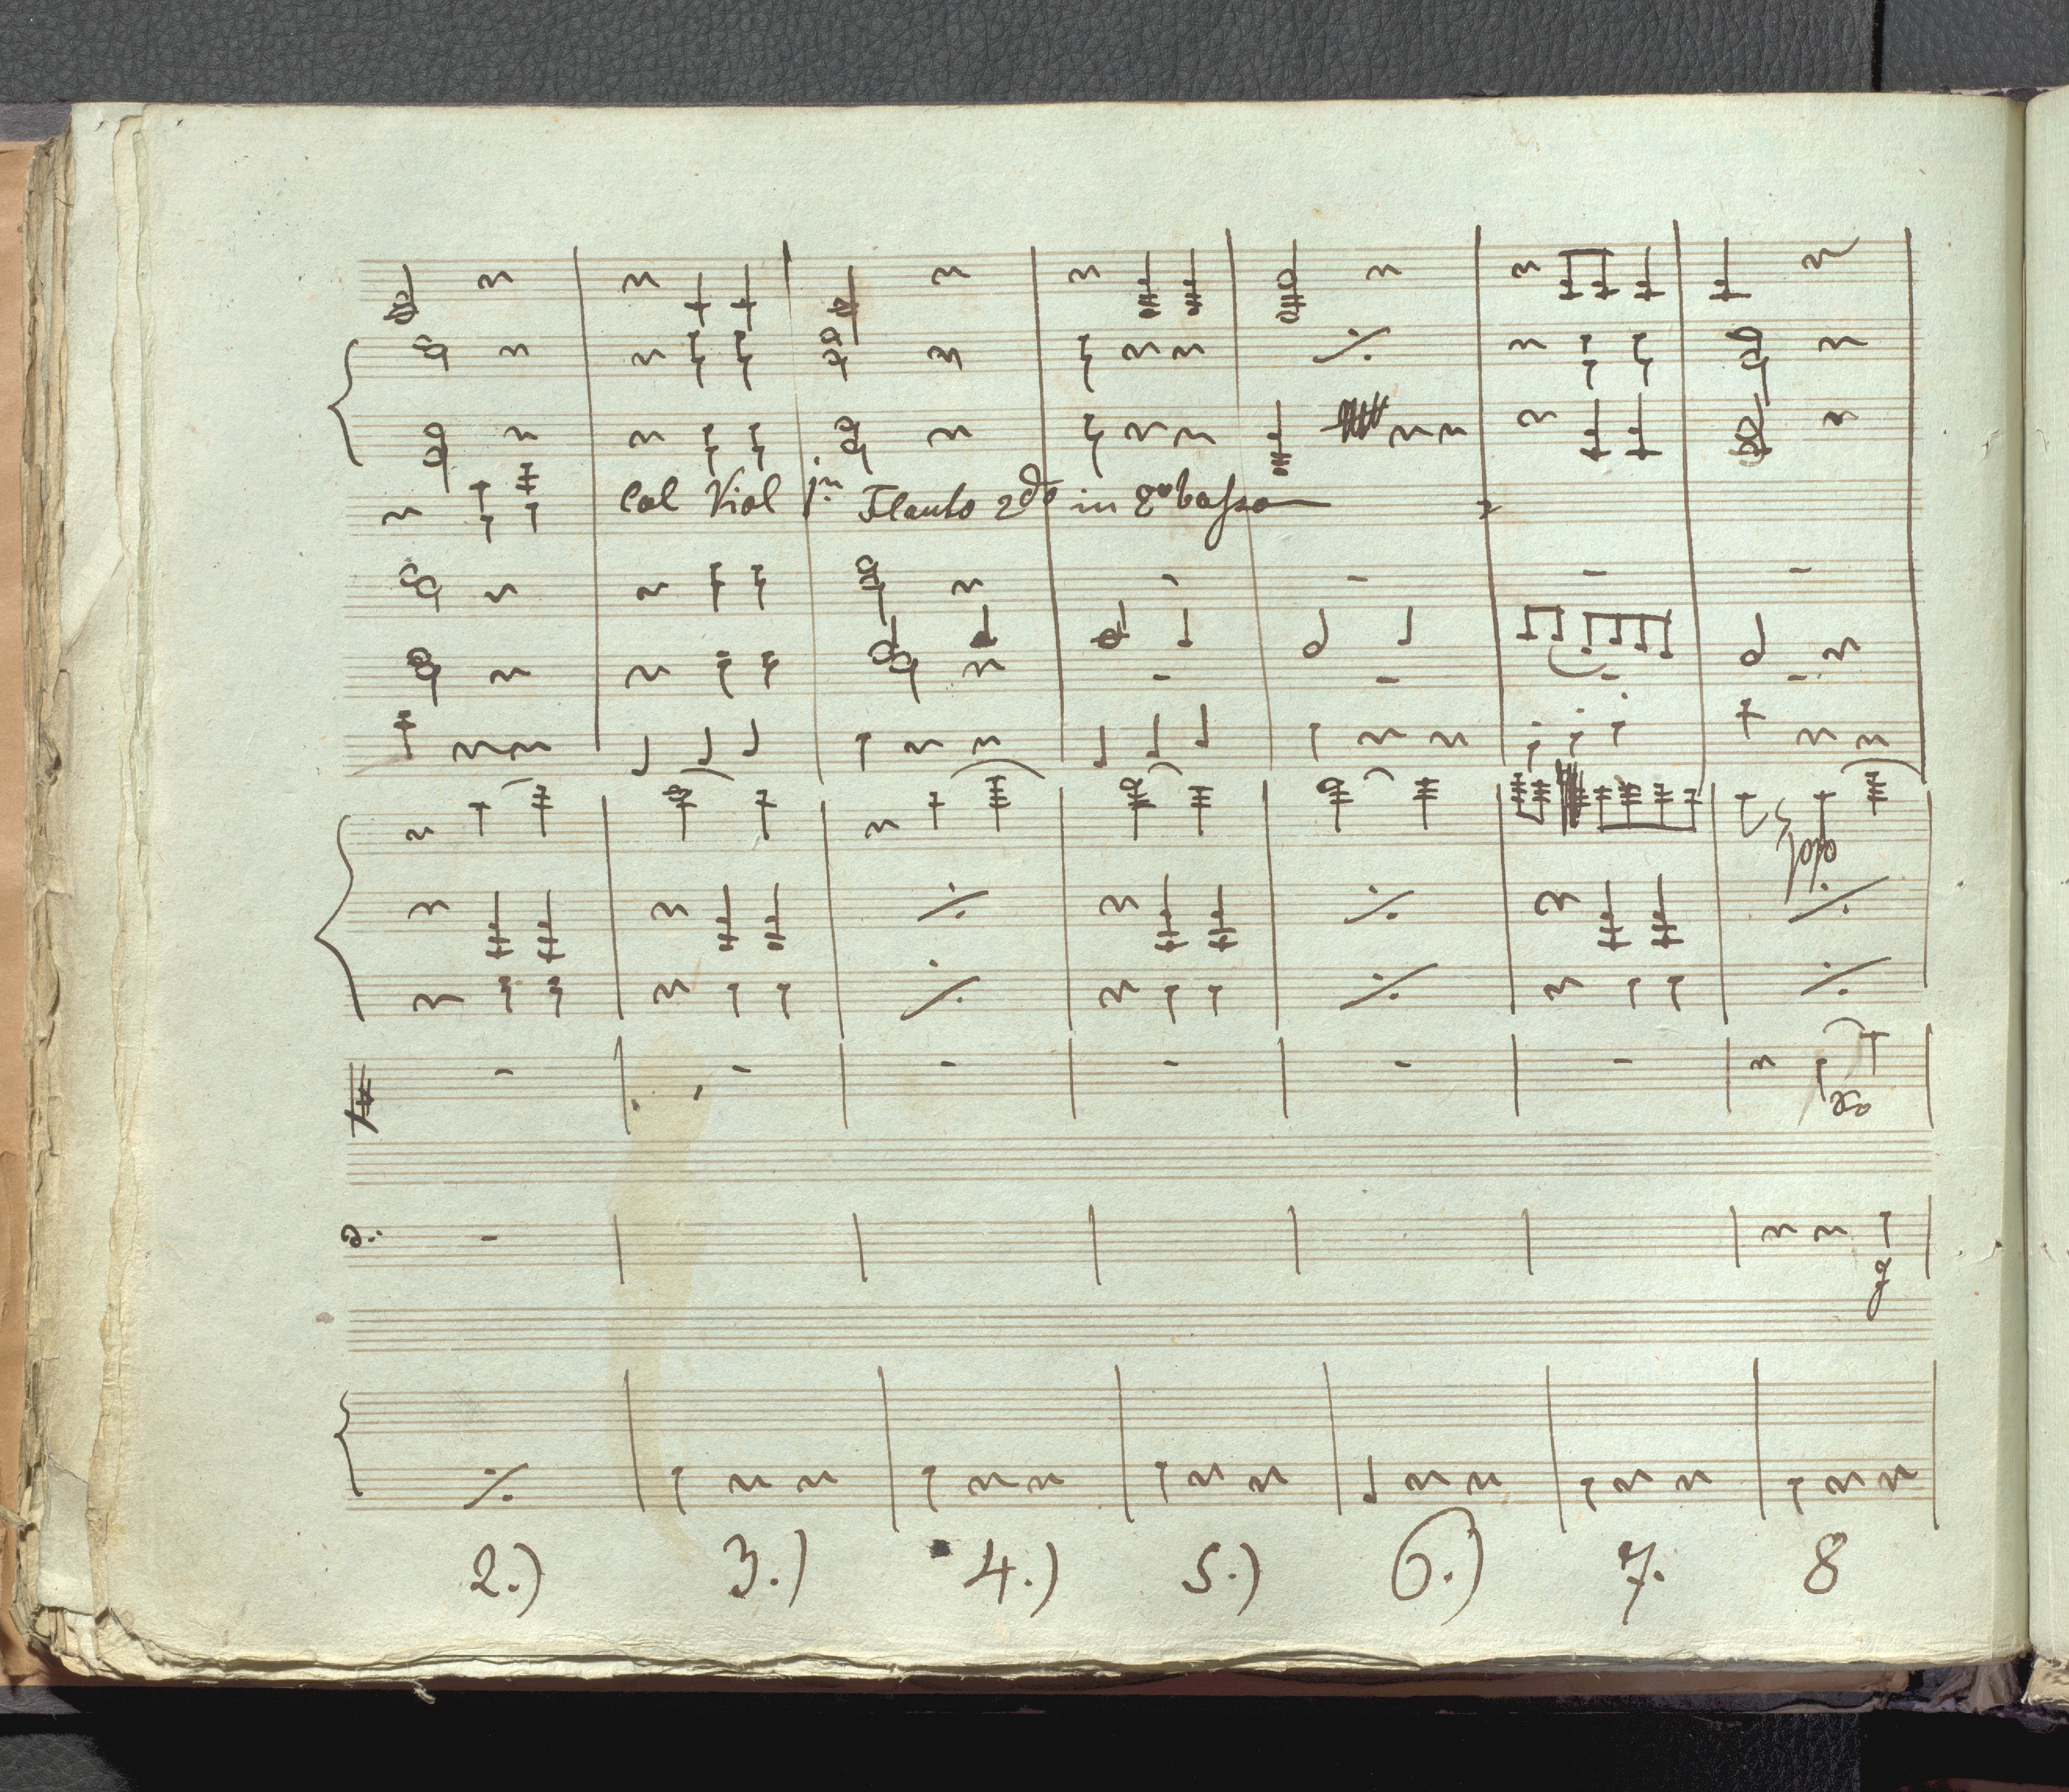 Col Viol 1mo Flauto 2do in 8va bassa
2.) 3.) 4.) 5.) 6.) 7. 8